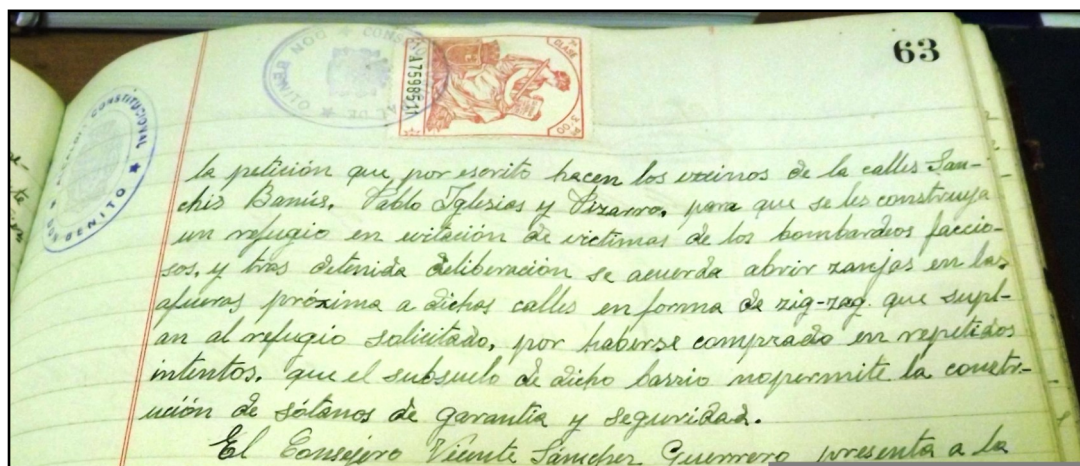 63
CONS
DON
AL DE
QUINEN
A7598511
CLASE
ALCALDIA CONSTITUCIONAL
DON BENITO
la petición que por escrito hacen los vecinos de la calles San-
chis Banús, Pablo Iglesias y Pizarro, para que se les construya
un refugio en evitación de victimas de los bombardeos faccio-
sos, y tras detenida deliberación se acuerda abrir zanjas en las
afueras próxima a dichas calles en forma de zig-zag. que supl-
an al refugio solicitado, por haberse comprado en repetidos
intentos, que el subsuelo de dicho barrio no permite la constr-
ución de sótanos de garantia y seguridad.
El Consejero Vicente Sánchez Guerrero presenta a la